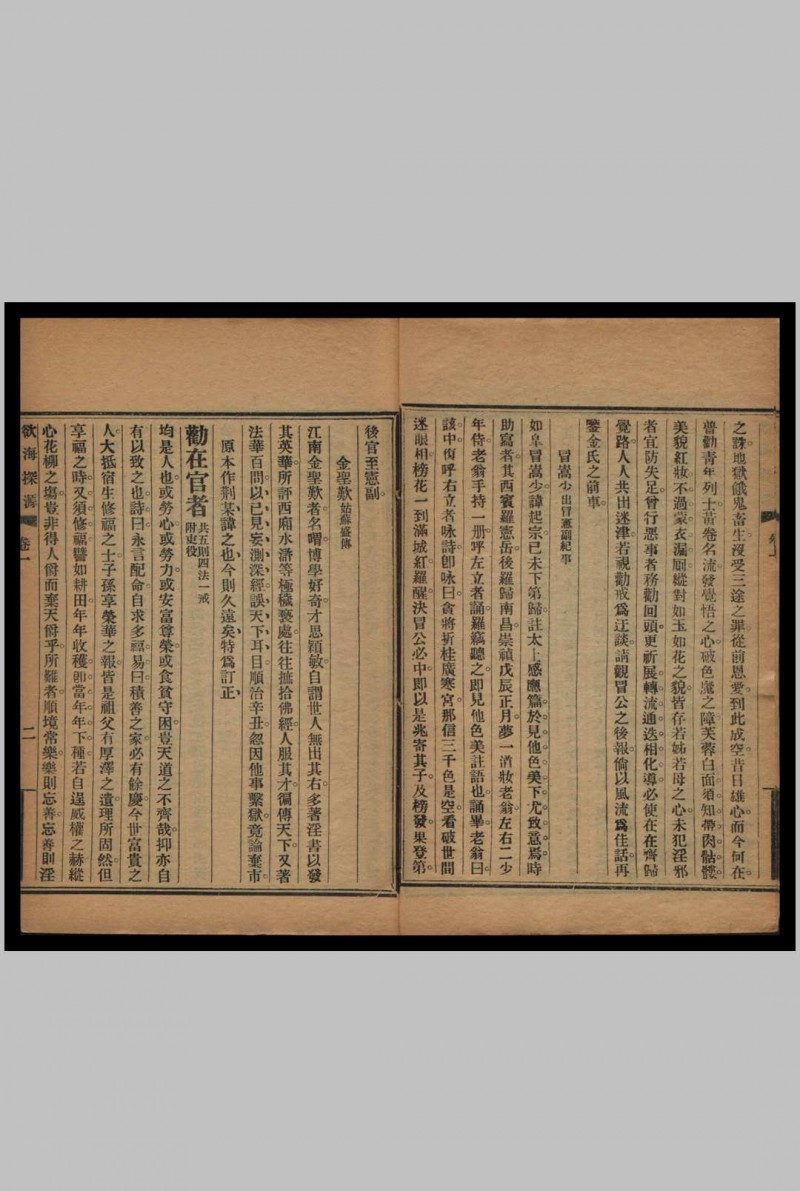 之誅地獄餓鬼畜生沒受三途之罪從前恩愛到此成空昔日雄心而今何在
普勸青年列士黃卷名流發覺悟之心破色魔之障芙蓉白面須知帶肉骷髏
美貌紅妝不過蒙衣漏厠縱對如玉如花之貌皆存若姊若母之心未犯淫邪
者宜防失足曾行惡事者務勸回頭更祈展轉流通迭相化導必使在在齊歸
覺路人人共出迷津若視勸戒爲迂談請觀冒公之後報倘以風流爲佳話再
鑒金氏之前車
冒嵩少 出冒憲副紀事
如皐冒嵩少諱起宗己未下第歸註太上感應篇於見他色美下尤致意焉時
助寫者其西賓羅憲岳後羅歸南昌崇禎戊辰正月夢一道妝老翁左右二少
年侍老翁手持一册呼左立者誦羅竊聽之卽見他色美註語也誦畢老翁曰
該中復呼右立者咏詩卽咏曰貪將折桂廣寒宮那信三千色是空看破世間
迷眼相榜花一到滿城紅羅醒決冒公必中卽以是兆寄其子及榜發果登第
後官至憲副
金聖歎 姑蘇盛傳
江南金聖歎者名喟博學好奇才思穎敏自謂世人無出其右多著淫書以發
其英華所評西廂水滸等極穢褻處往往摭拾佛經人服其才徧傳天下又著
法華百問以己見妄測深經誤天下耳目順治辛丑忽因他事繫獄竟論棄市
原本作荆某諱之也今則久遠矣特爲訂正
勸在官者 共五則四法一戒 附吏役
均是人也或勞心或勞力或安富尊榮或食貧守困豈天道之不齊哉抑亦自
有以致之也詩曰永言配命自求多福易曰積善之家必有餘慶今世富貴之
人大抵宿生修福之士子孫享榮華之報皆是祖父有厚澤之遺理所固然但
享福之時又須修福譬如耕田年年收穫卽當年年下種若自逞威權之赫縱
心花柳之塲豈非得人爵而棄天爵乎所難者順境常樂樂則忘善忘善則淫
欲海探源 卷一 二